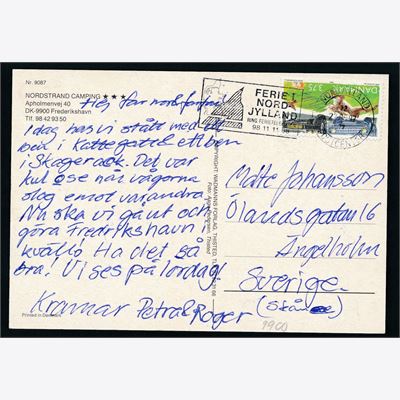 Nr. 9087
NORDSTRAND CAMPING ★★★
Apholmenvej 40
DK-9900 Frederikshavn
Tlf. 98 42 93 50
Hej
Idag har vi stått med ett
ben i Kattegatt & ett ben
i Skagerack. Det var
kul o se när vågorna
slog emot varandra.
Nu ska vi gå ut och
göra Fredrikshavn i
kväll. Ha det så
bra! Vi ses på lördag!
Kramar Petra & Roger
Printed in Denmark
FERIE I
NORD
JYLLAND
98 11 11
DANMARK
3.75
Matte Johansson
Ölandsgatan 16
Ängelholm
Sverige.
(Skåne)
1900